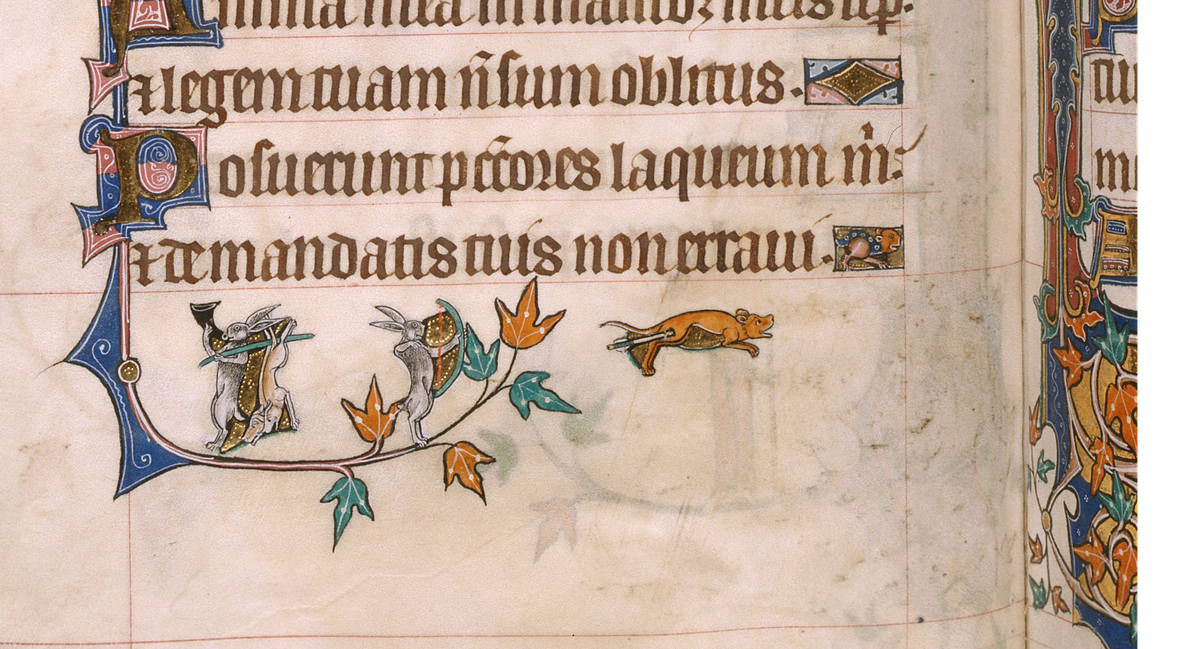 Anima mea in manibꝫ meis sēp.
⁊ legem tuam n̄ sum oblitus.
Posuerunt pcc̄ores laqueum mͥ.
⁊ de mandatis tuis non erraui.